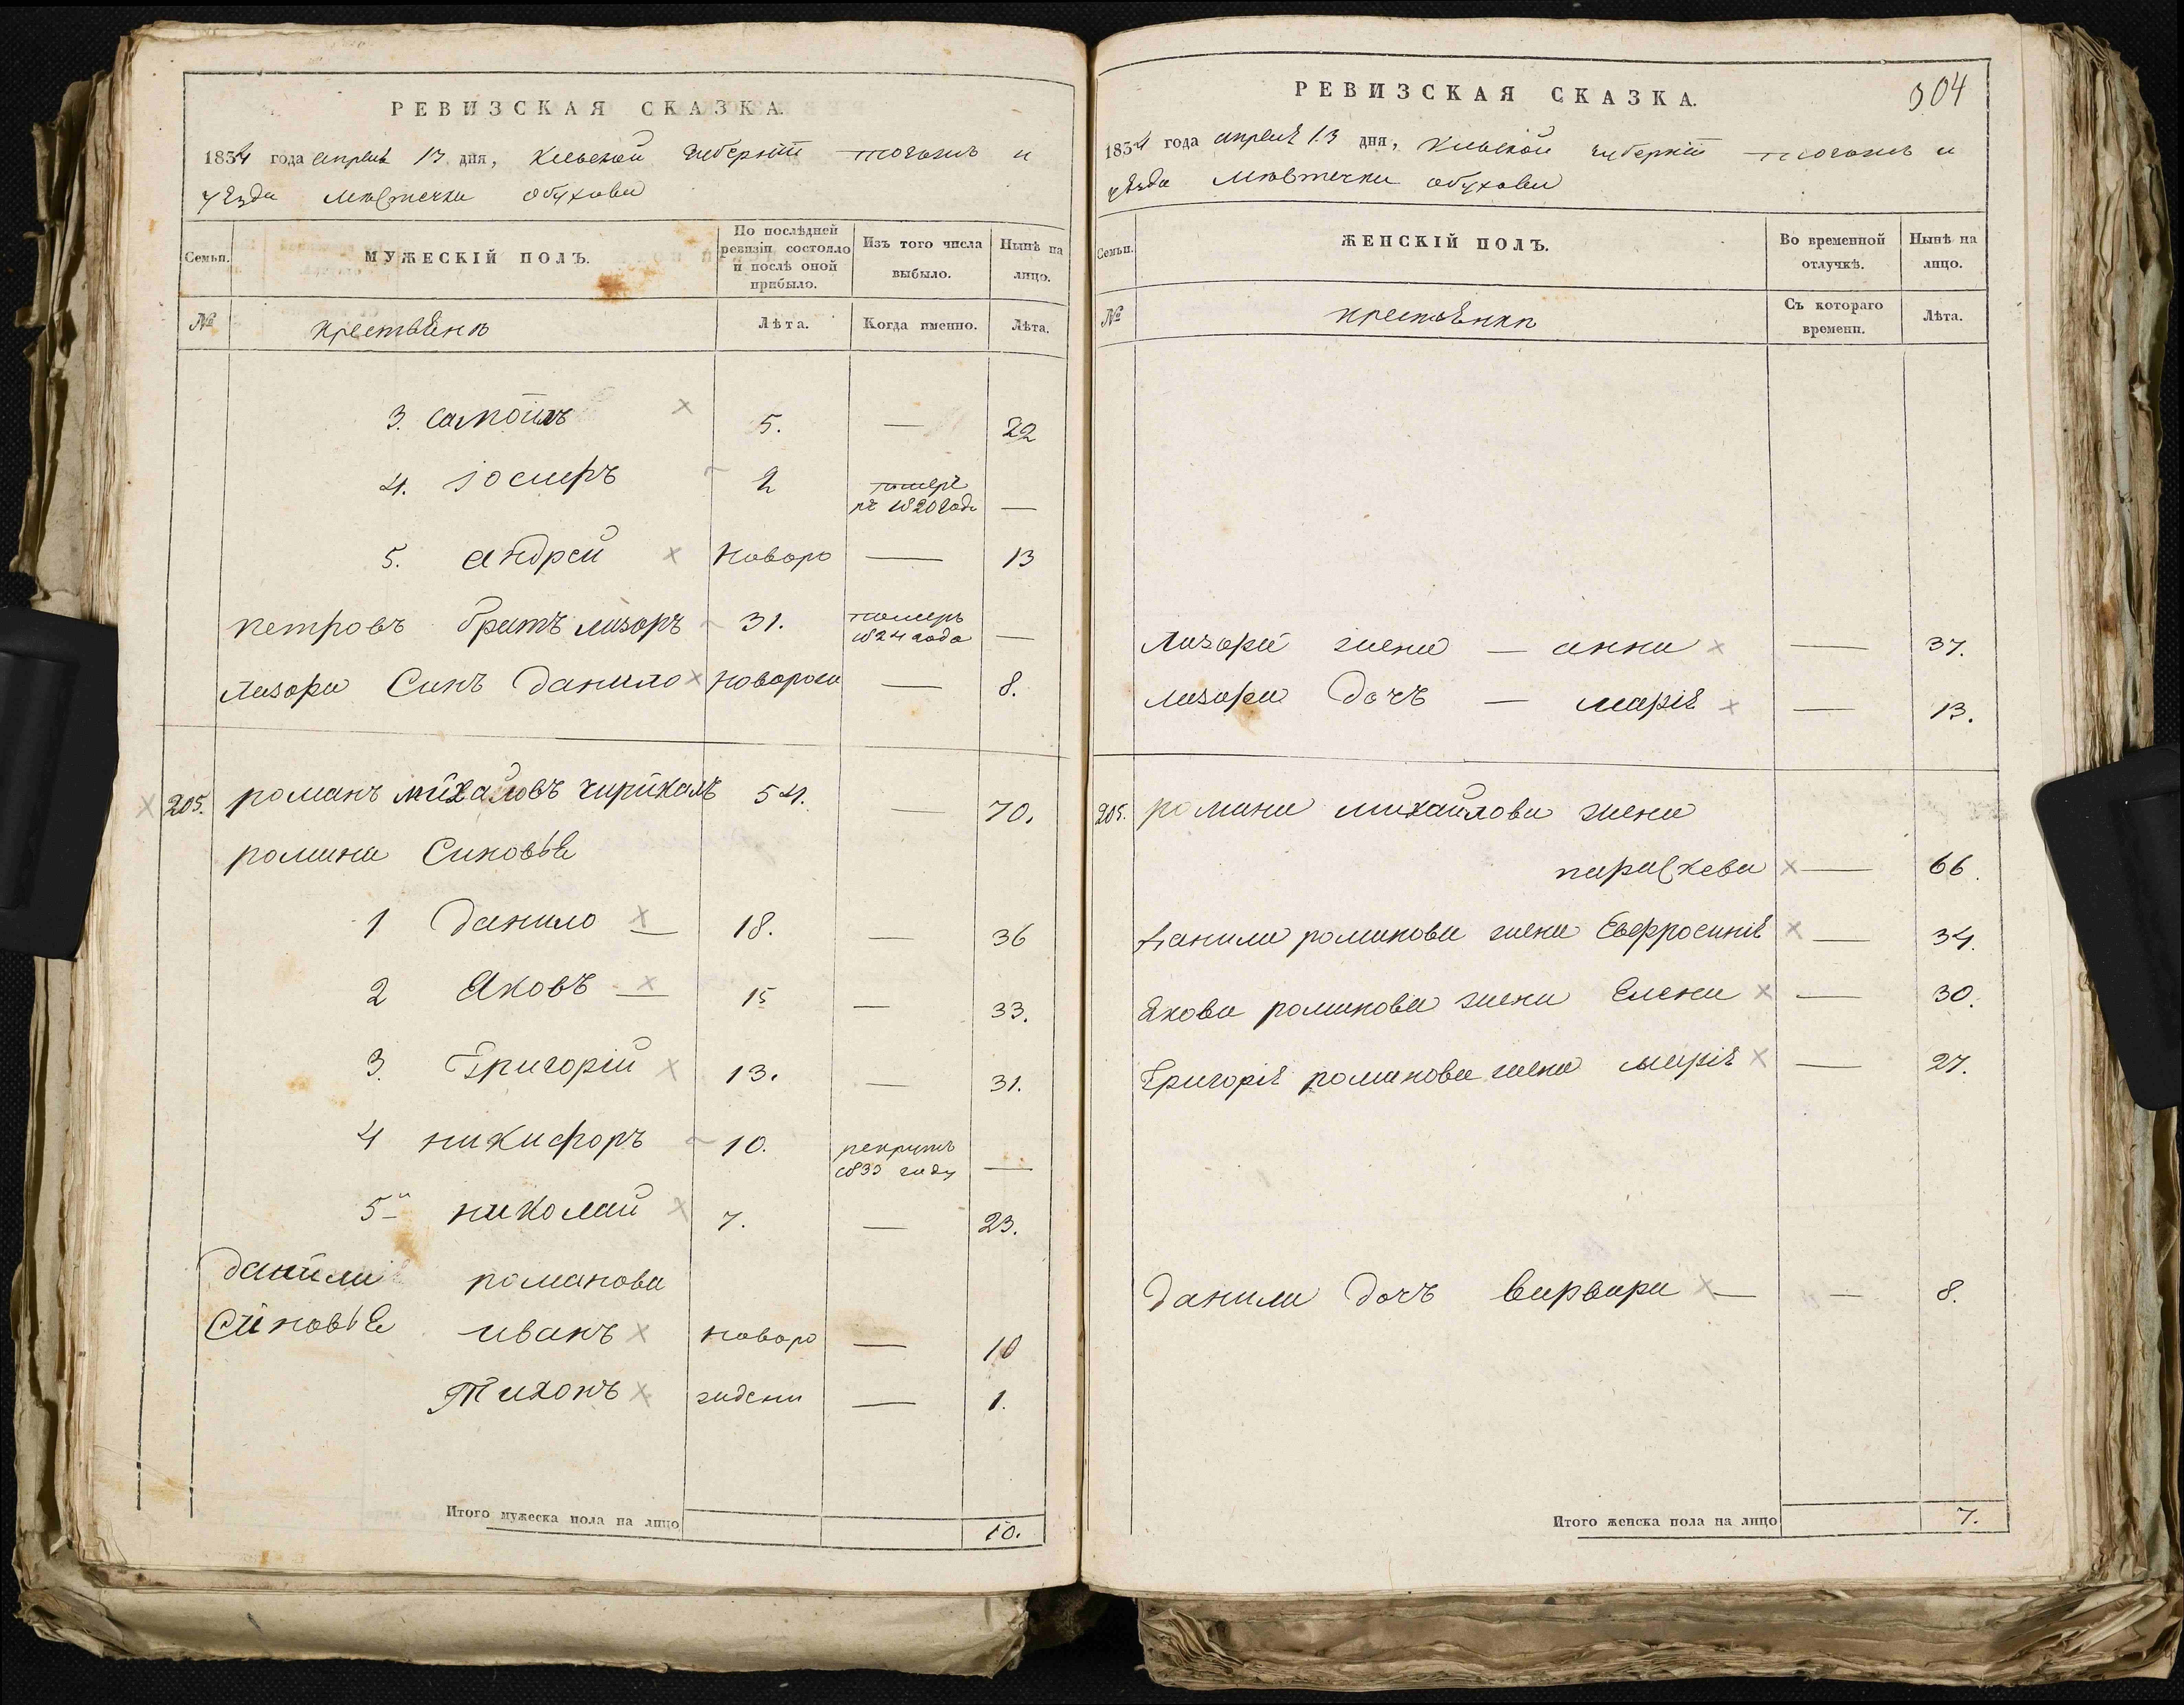 РЕВИЗСКАЯ СКАЗКА.
1834 года апреля 13 дня, Киевской губернии тогожъ и
уѣзда местечка обухова
Семьи.
МУЖЕСКІЙ ПОЛЪ.
По послѣдней ревизіи состояло и послѣ оной прибыло.
Изъ того числа выбыло.
Нынѣ на лицо.
№
крестьянъ
Лѣта.
Когда именно.
Лѣта.
3. самоилъ 5. — 22
4. іосифъ 2 померъ въ 1820 годе —
5. андрей новоро — 13
петровъ братъ лазоръ 31. померъ 1824 года —
лазора синъ данило новорож — 8.
205. романъ михайловъ чирикалъ 54. — 70.
романа синовье
1 данило — 18. — 36
2 яковъ — 15 — 33.
3. Григорій 13. — 31.
4 никифоръ 10. рекрутъ 1833 году —
5й николай 7. — 23.
данили романова
синовье иванъ новоро — 10
Тихонъ жденн — 1.
Итого мужеска пола на лицо 10.
РЕВИЗСКАЯ СКАЗКА.
304
1834 года апреля 13 дня, Киевской губерніи тогожъ и
уѣзда местечка обухова
Семьи.
ЖЕНСКІЙ ПОЛЪ.
Во временной отлучкѣ.
Нынѣ на лицо.
№
крестьянки
Съ котораго времени.
Лѣта.
Лазора жена — анна — 37.
лазора дочъ — марія — 13.
205. романа михайлова жена
параскева — 66.
данили романова жена Евфросинія — 34.
Якова романова жена Елена — 30.
Григорія романова жена марія — 27.
данили дочъ варвара — — 8.
Итого женска пола на лицо 7.